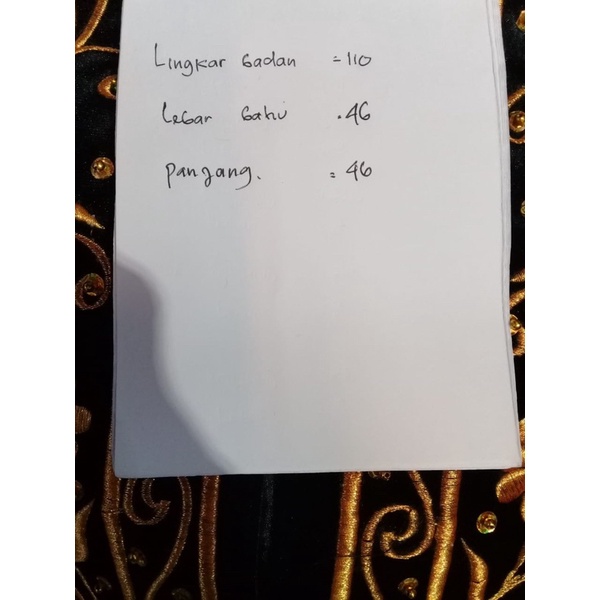 Lingkar badan = 110
Lebar bahu . 46
Panjang. = 46